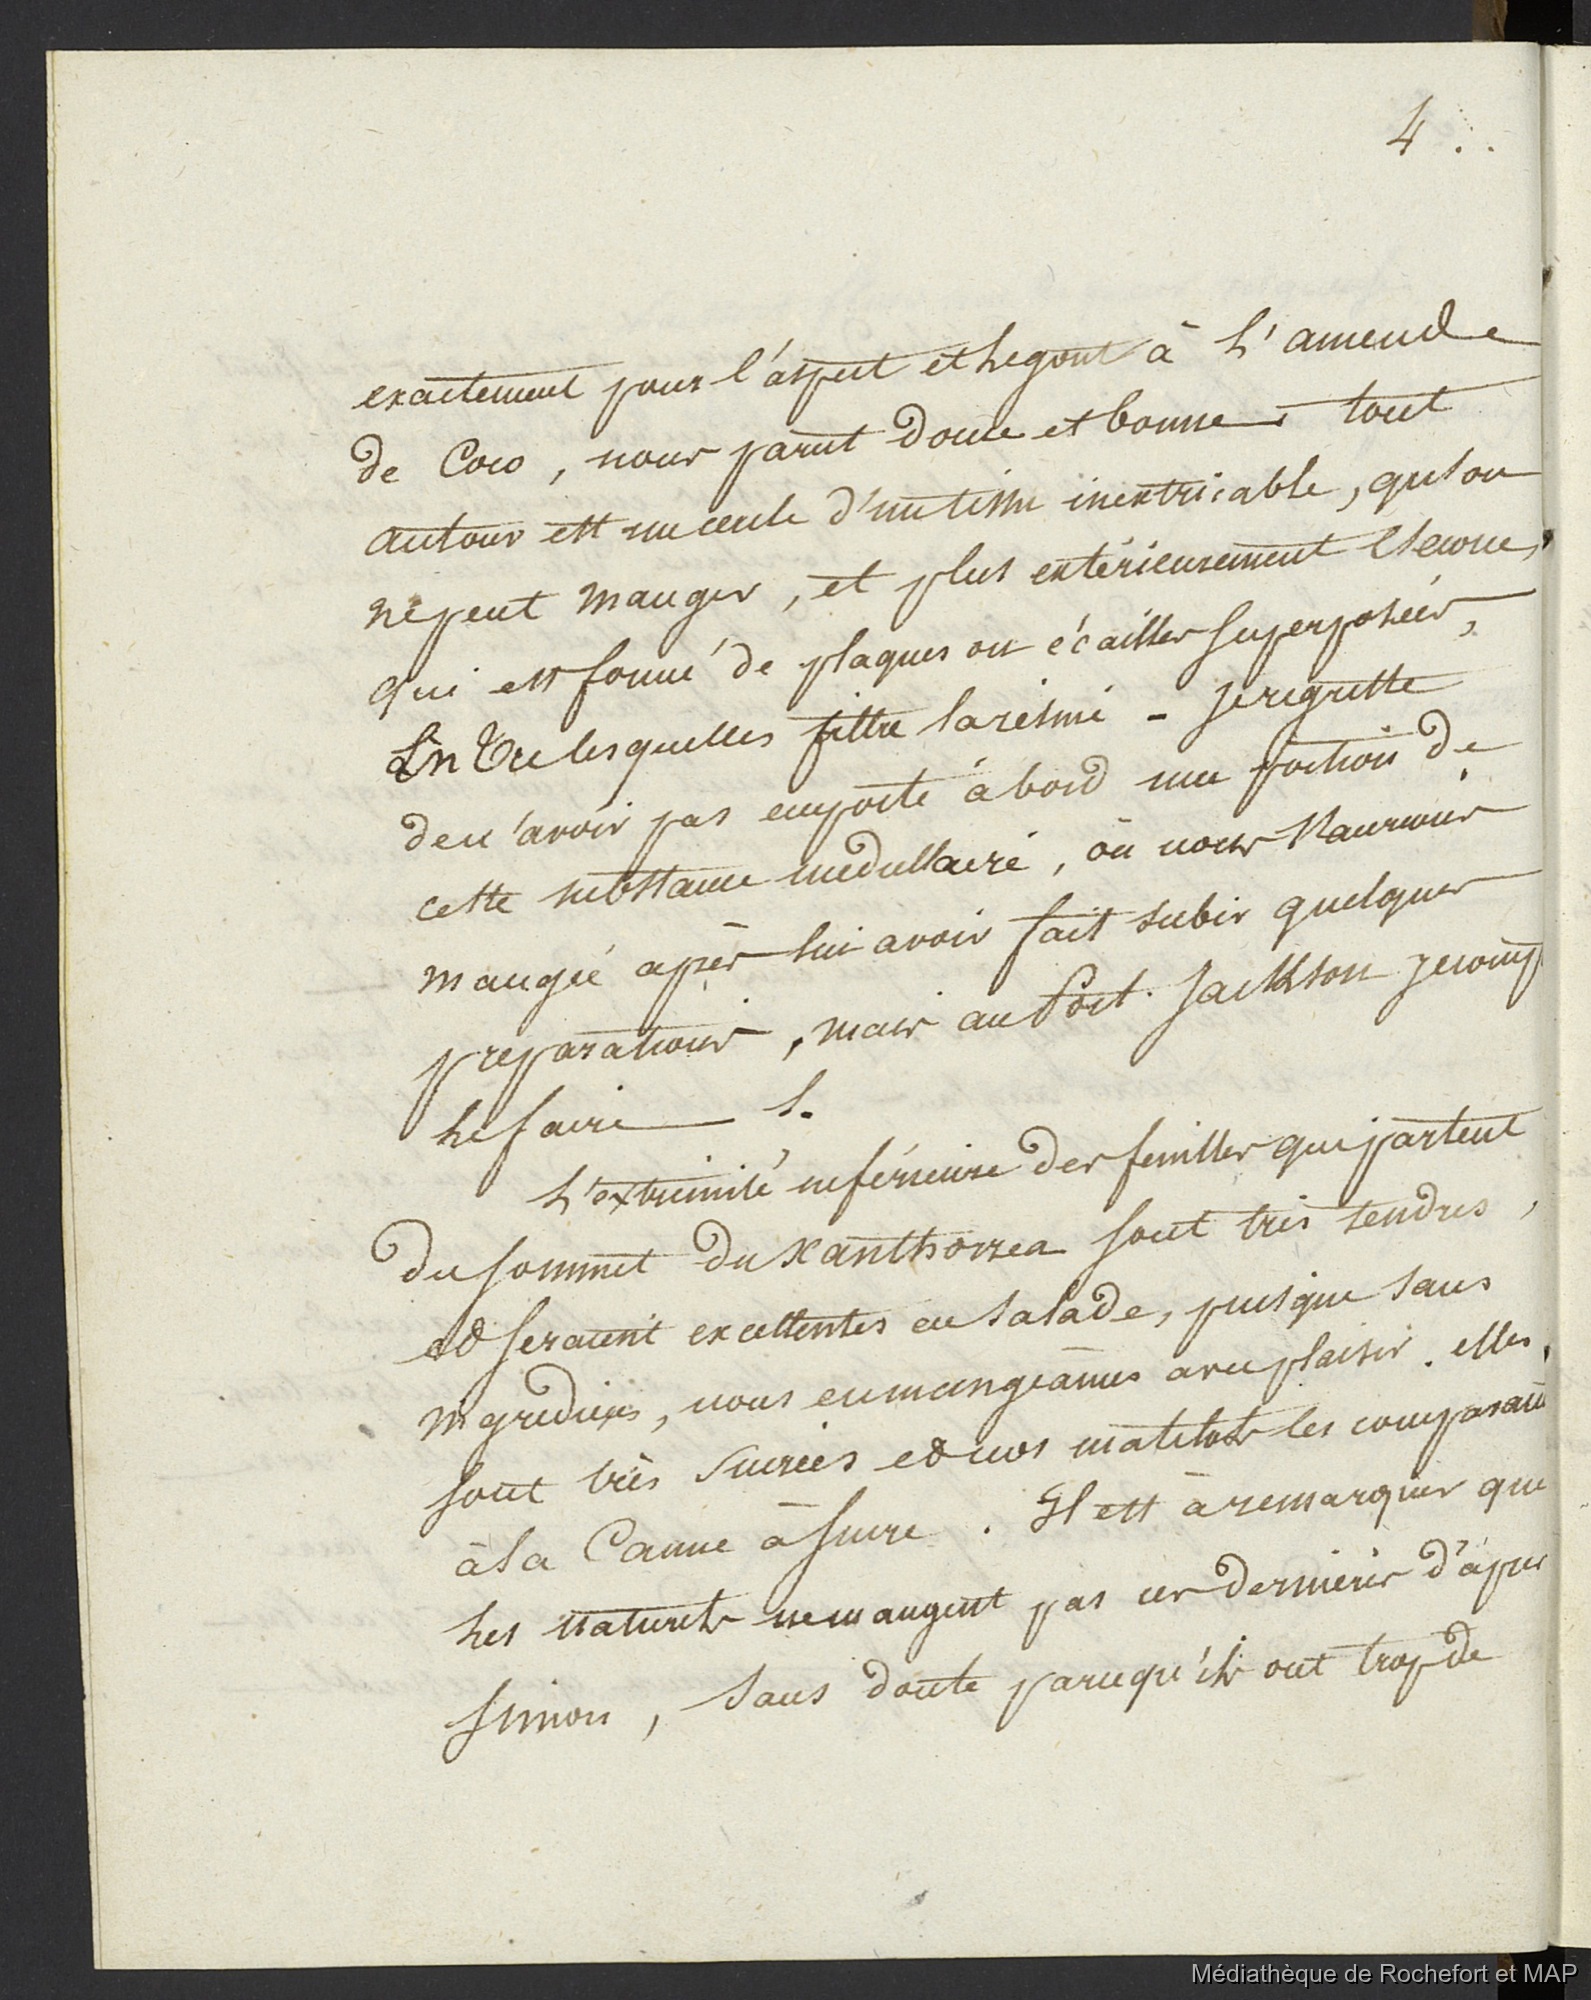 4..
exactement pour l'aspect et le gout à l'amende
de Coco, nous parut douce et bonne. tout
autour est un cercle d'un tissu inextricable, qu'on
ne peut manger, et plus extérieurement l'écorce,
qui est formé de plaques ou écailles superposées,
Entre lesquelles filtre la résine - je regrette
de n'avoir pas emporté à bord une portion de
cette substance medullaire, où nous l'aurions
mangé après lui avoir fait subir quelques
preparations, mais au Port Jackson je comp
le faire
L'extrémité inférieure des feuilles qui partent
du sommet du Xanthorrea sont très tendres,
et seraient excellentes en salade, puisque sans
ingrediens, nous en mangeames avec plaisir. elles
sont très sucrées et nos matelots les comparaient
à la Canne à sucre. Il est à remarquer que
les naturels ne mangent pas ces dernières d'après
Simon, sans doute parcequ'ils ont trop de
Médiathèque de Rochefort et MAP